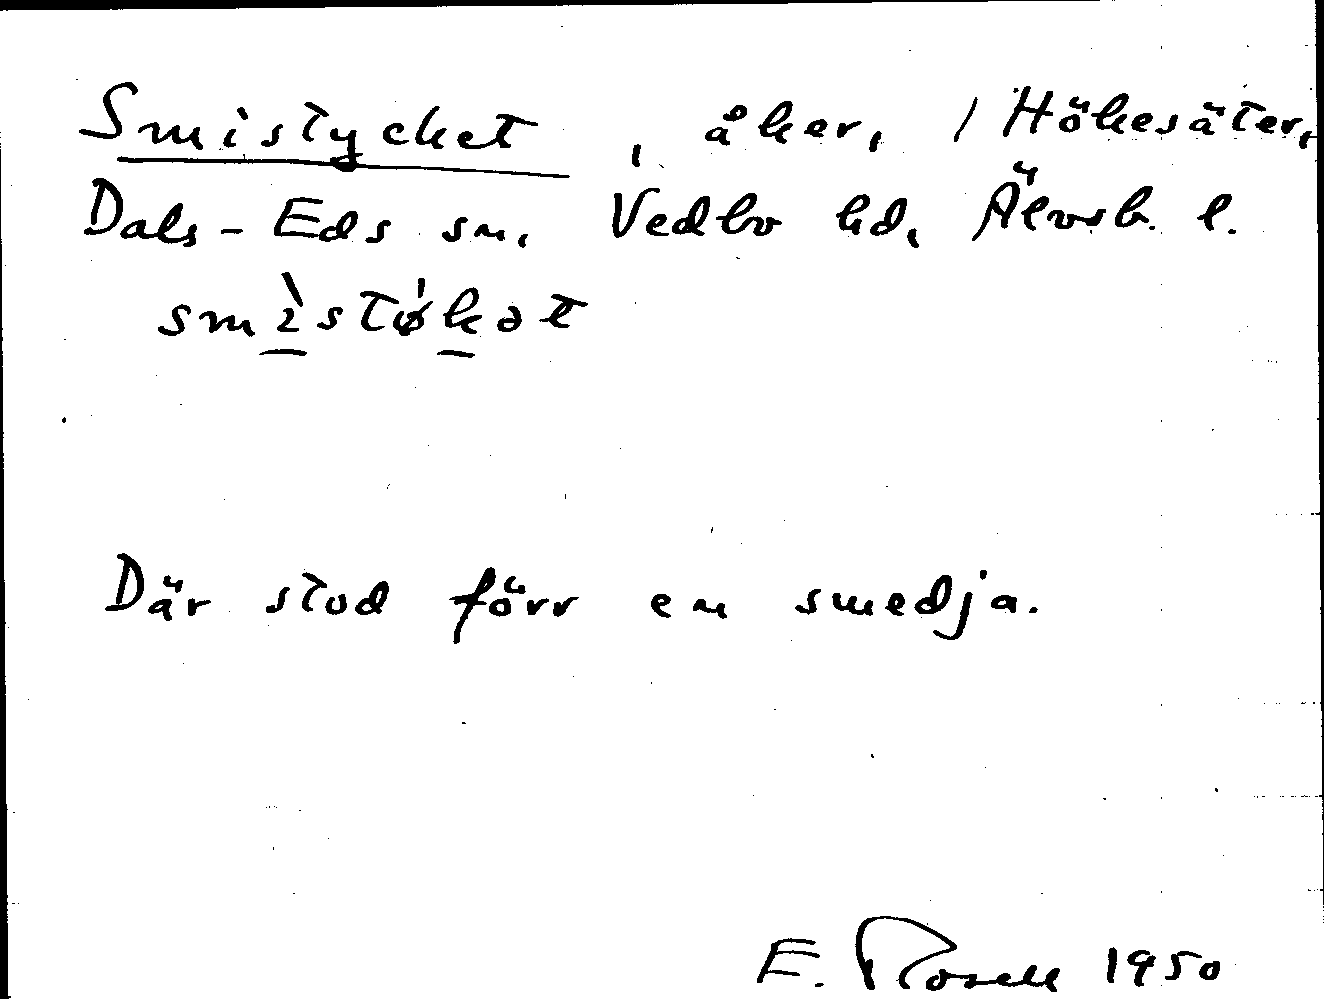 Smistycket, åker, / Hökesäter,
Dals-Eds sn, Vedbo hd, Älvsb. l.
smìstø̀kət
Där stod förr en smedja.
E. Rosell 1950